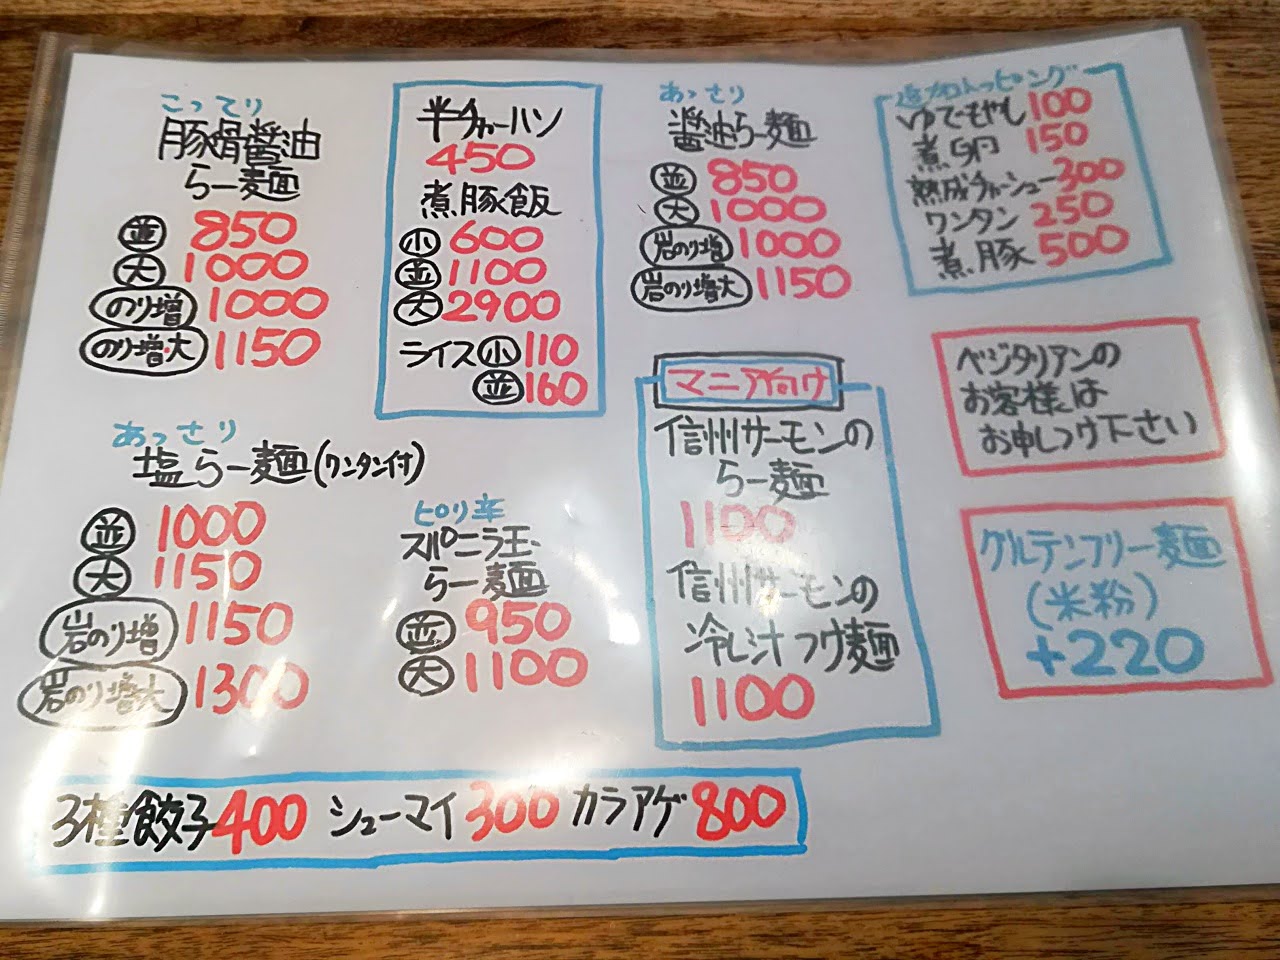 こってり
豚骨醤油
らー麺
並 850
大 1000
のり増 1000
のり増・大 1150
半チャーハン
450
煮豚飯
小 600
並 1100
大 2900
ライス 小 110
並 160
あっさり
醤油らー麺
並 850
大 1000
岩のり増 1000
岩のり増大 1150
追加トッピング
ゆでもやし 100
煮卵 150
熟成チャーシュー 300
ワンタン 250
煮豚 500
ベジタリアンの
お客様は
お申しつけ下さい
グルテンフリー麺
(米粉)
+220
マニア向け
信州サーモンの
らー麺
1100
信州サーモンの
冷し汁つけ麺
1100
あっさり
塩らー麺(ワンタン付)
並 1000
大 1150
岩のり増 1150
岩のり増大 1300
ピリ辛
スパニラ玉
らー麺
並 950
大 1100
3種餃子 400 シューマイ 300 カラアゲ 800